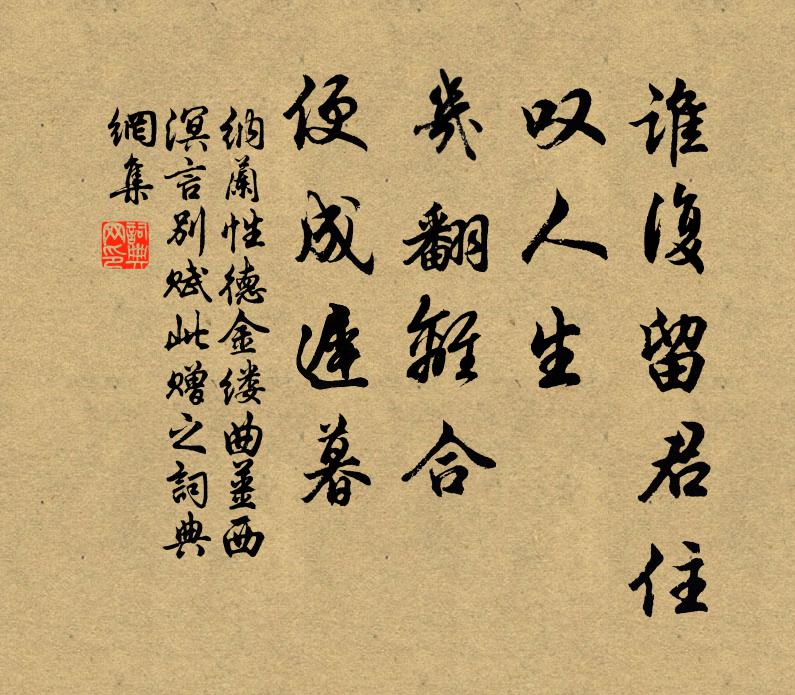 谁復留君住
叹人生
幾翻離合
便成遲暮
納蘭性德金缕曲薑西
溟言別赋此赠之詞典
網集
詞典
网印